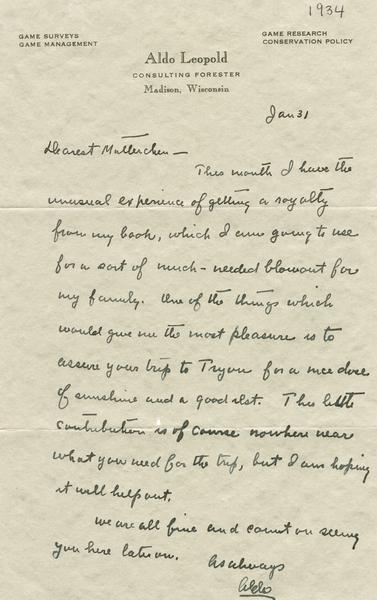 1934
GAME SURVEYS
GAME MANAGEMENT
GAME RESEARCH
CONSERVATION POLICY
Aldo Leopold
CONSULTING FORESTER
Madison, Wisconsin
Jan 31
Dearest Mutterchen —
This month I have the
unusual experience of getting a royalty
from my book, which I am going to use
for a sort of much-needed blowout for
my family. One of the things which
would give me the most pleasure is to
assure your trip to Tryon for a nice dose
of sunshine and a good rest. This little
contribution is of course nowhere near
what you need for the trip, but I am hoping
it will help out.
We are all fine and count on seeing
you here later on.
As always
Aldo